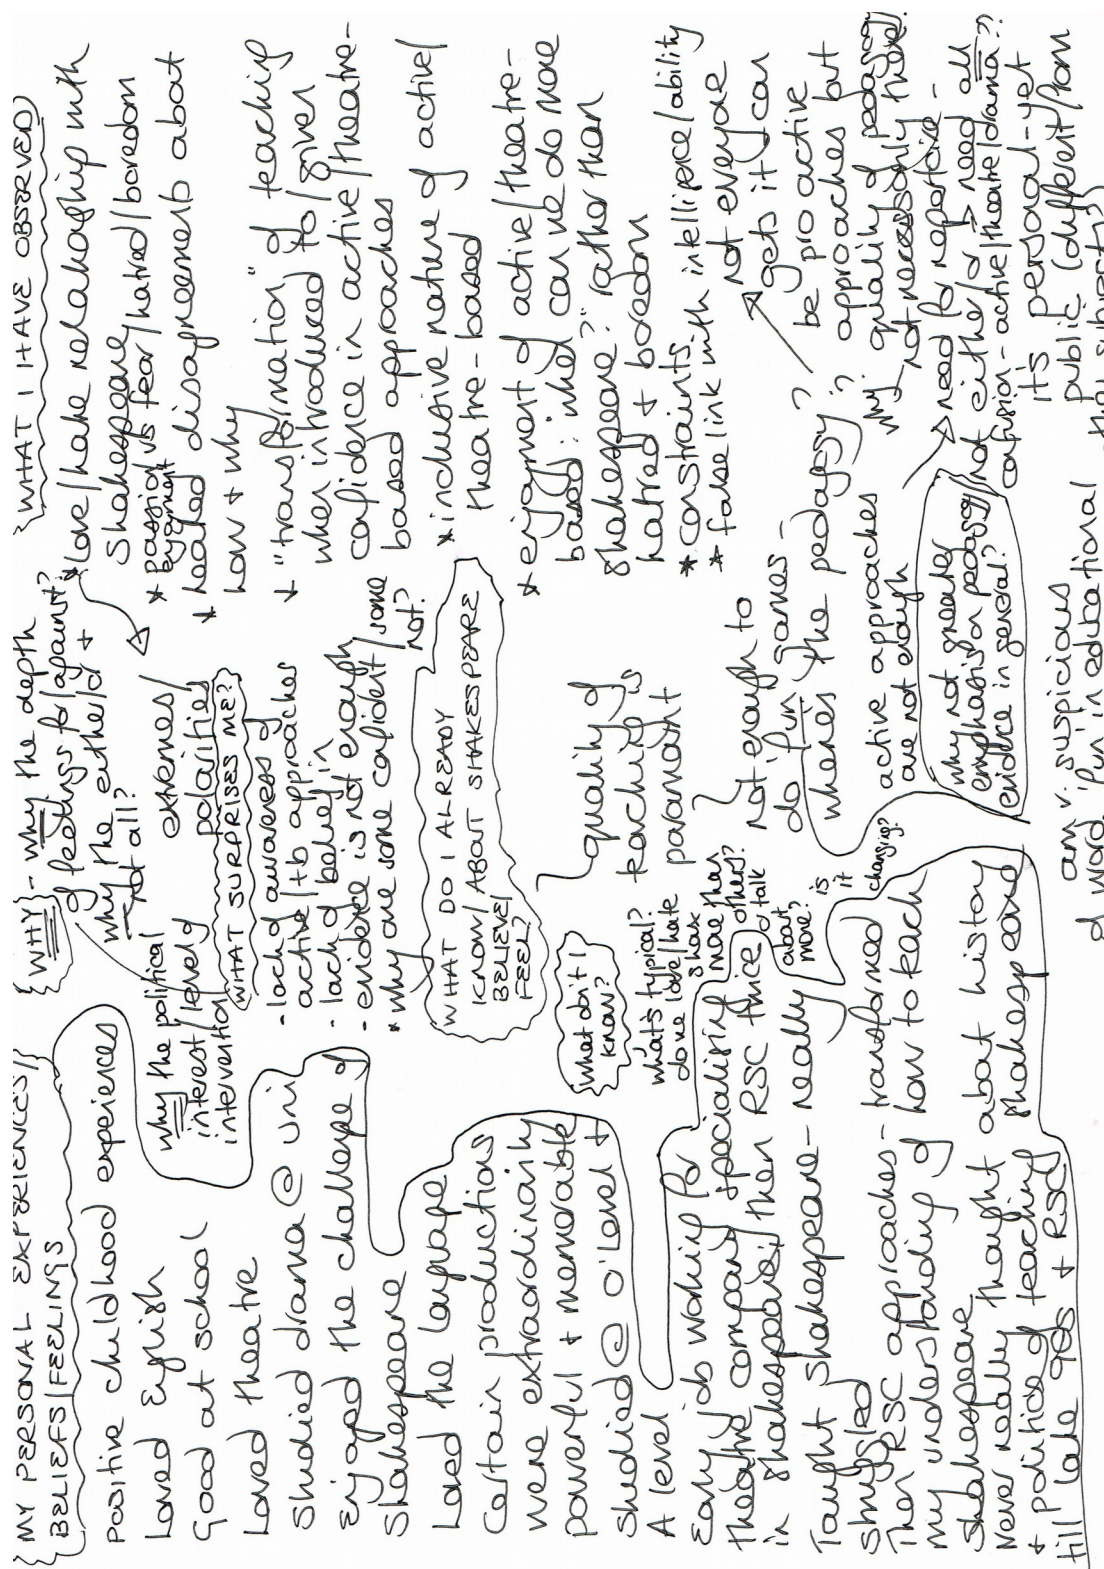 MY PERSONAL EXPERIENCES/
BELIEFS/FEELINGS
Positive childhood experiences
Loved English
Good at school
Loved theatre
Studied drama @ uni
Enjoyed the challenge of
Shakespeare
Loved the language
Certain productions
were extraordinarily
powerful + memorable
Studied @ O'Level +
A level
Early job working for
theatre company specialising
in Shakespeare, then RSC twice
Taught Shakespeare - really
struggled
Then RSC approaches - transformed
my understanding of how to teach
Shakespeare
Never really thought about history
+ politics of teaching Shakespeare
till late 90s + RSC
WHY - why the depth
of feelings for/against?
why the either/or +
not all?
why the political
interest/level of
intervention
extremes/
polarities
WHAT SURPRISES ME?
- lack of awareness of
active/tb approaches
- lack of belief in
- evidence is not enough
* why are some confident/some
not?
WHAT DO I ALREADY
KNOW/ABOUT SHAKESPEARE
BELIEVE/
FEEL?
What don't I
know?
what's typical?
do we love/hate
Shak
more than
others?
or talk
about
more?
is
it
changing?
quality of
teaching is
paramount
not enough to
do fun games -
where's the pedagogy?
active approaches
are not enough
why not greater
emphasis on pedagogy/
evidence in general?
am v. suspicious
of word 'fun' in educational
WHAT I HAVE OBSERVED
* love/hate relationship with
Shakespeare
* passion vs fear/hatred/boredom
enjoyment
* heated disagreements about
how + why
* "transformation" of teaching
when introduced to/given
confidence in active/theatre-
based approaches
* inclusive nature of active/
theatre-based
* enjoyment of active/theatre-
based: what can we do more
Shakespeare?" rather than
hatred + boredom
* constraints
* false link with intelligence/ability
not everyone
gets it/can
be pro active
approaches but
why? quality of pedagogy
not necessarily there!
need for repertoire -
not either/or => need all
confusion - active/theatre/drama??
it's personal - yet
public (different from